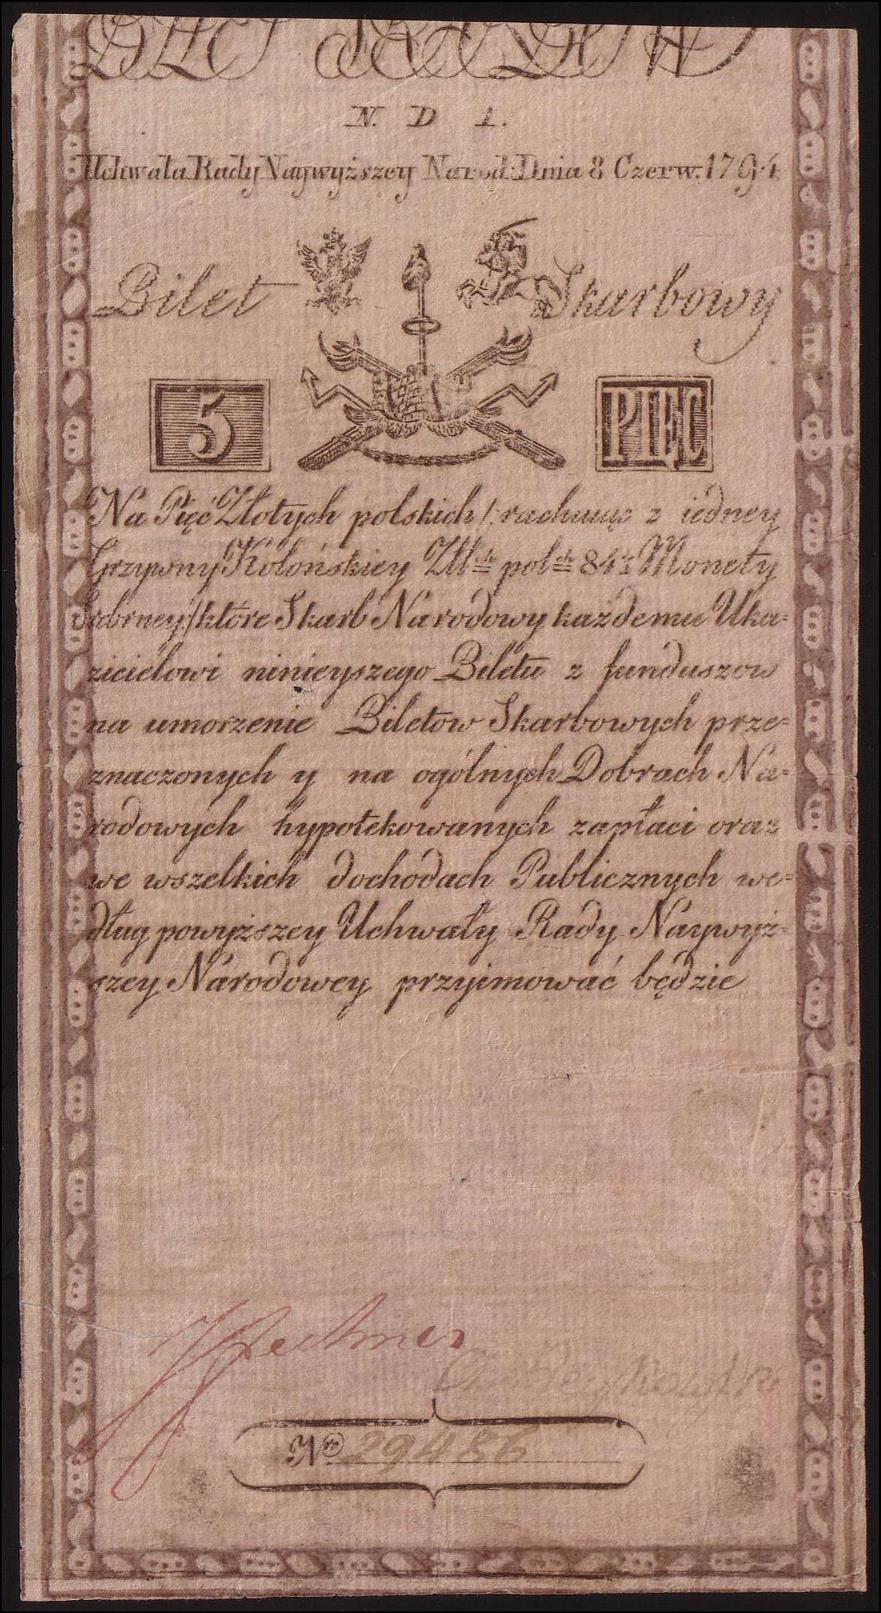 N. D 1.
Uchwała Rady Naywyższey Narod: Dnia 8 Czerw. 1794
Bilet Skarbowy
5 PIĘC
Na Pięć Złotych polskich /: rachuiąc z iedney
Grzywny Kolońskiey Złł: pol: 84½ Monety
Srebrney :/ które Skarb Narodowy każdemu Uka=
zicielowi ninieyszego Biletu z funduszow
na umorzenie Biletow Skarbowych prze=
znaczonych y na ogólnych Dobrach Na=
rodowych hypotekowanych zapłaci oraz
we wszelkich dochodach Publicznych we=
dług powyższey Uchwały Rady Naywyż=
szey Narodowey przyimować będzie
No 29486